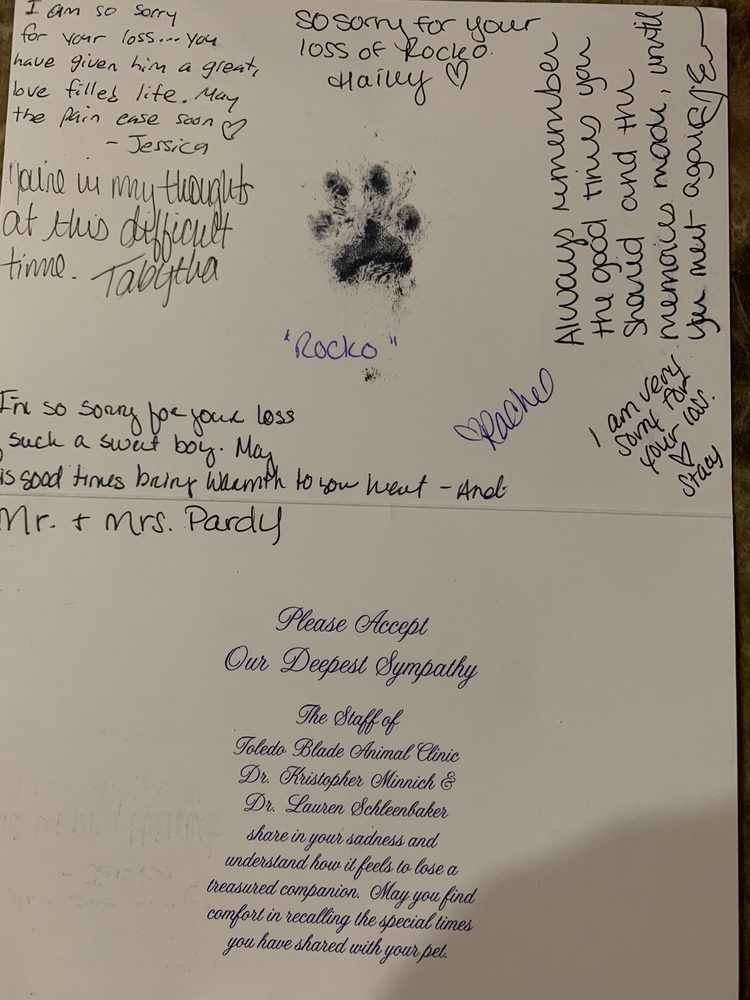 I am so sorry
for your loss... you
have given him a great,
love filled life. May
the pain ease soon ♡
- Jessica
So sorry for your
loss of Rocko.
Hailey ♡
Always remember
the good times you
shared and the
memories made, until
you meet again
You're in my thoughts
at this difficult
time. Tabytha
"Rocko"
♡Rachel
I am very
sorry for
your loss.
♡
Stacy
I'm so sorry for your loss
such a sweet boy. May
is good times bring warmth to your heart -
Mr. + Mrs. Pardy
Please Accept
Our Deepest Sympathy
The Staff of
Toledo Blade Animal Clinic
Dr. Kristopher Minnich &
Dr. Lauren Schleenbaker
share in your sadness and
understand how it feels to lose a
treasured companion. May you find
comfort in recalling the special times
you have shared with your pet.